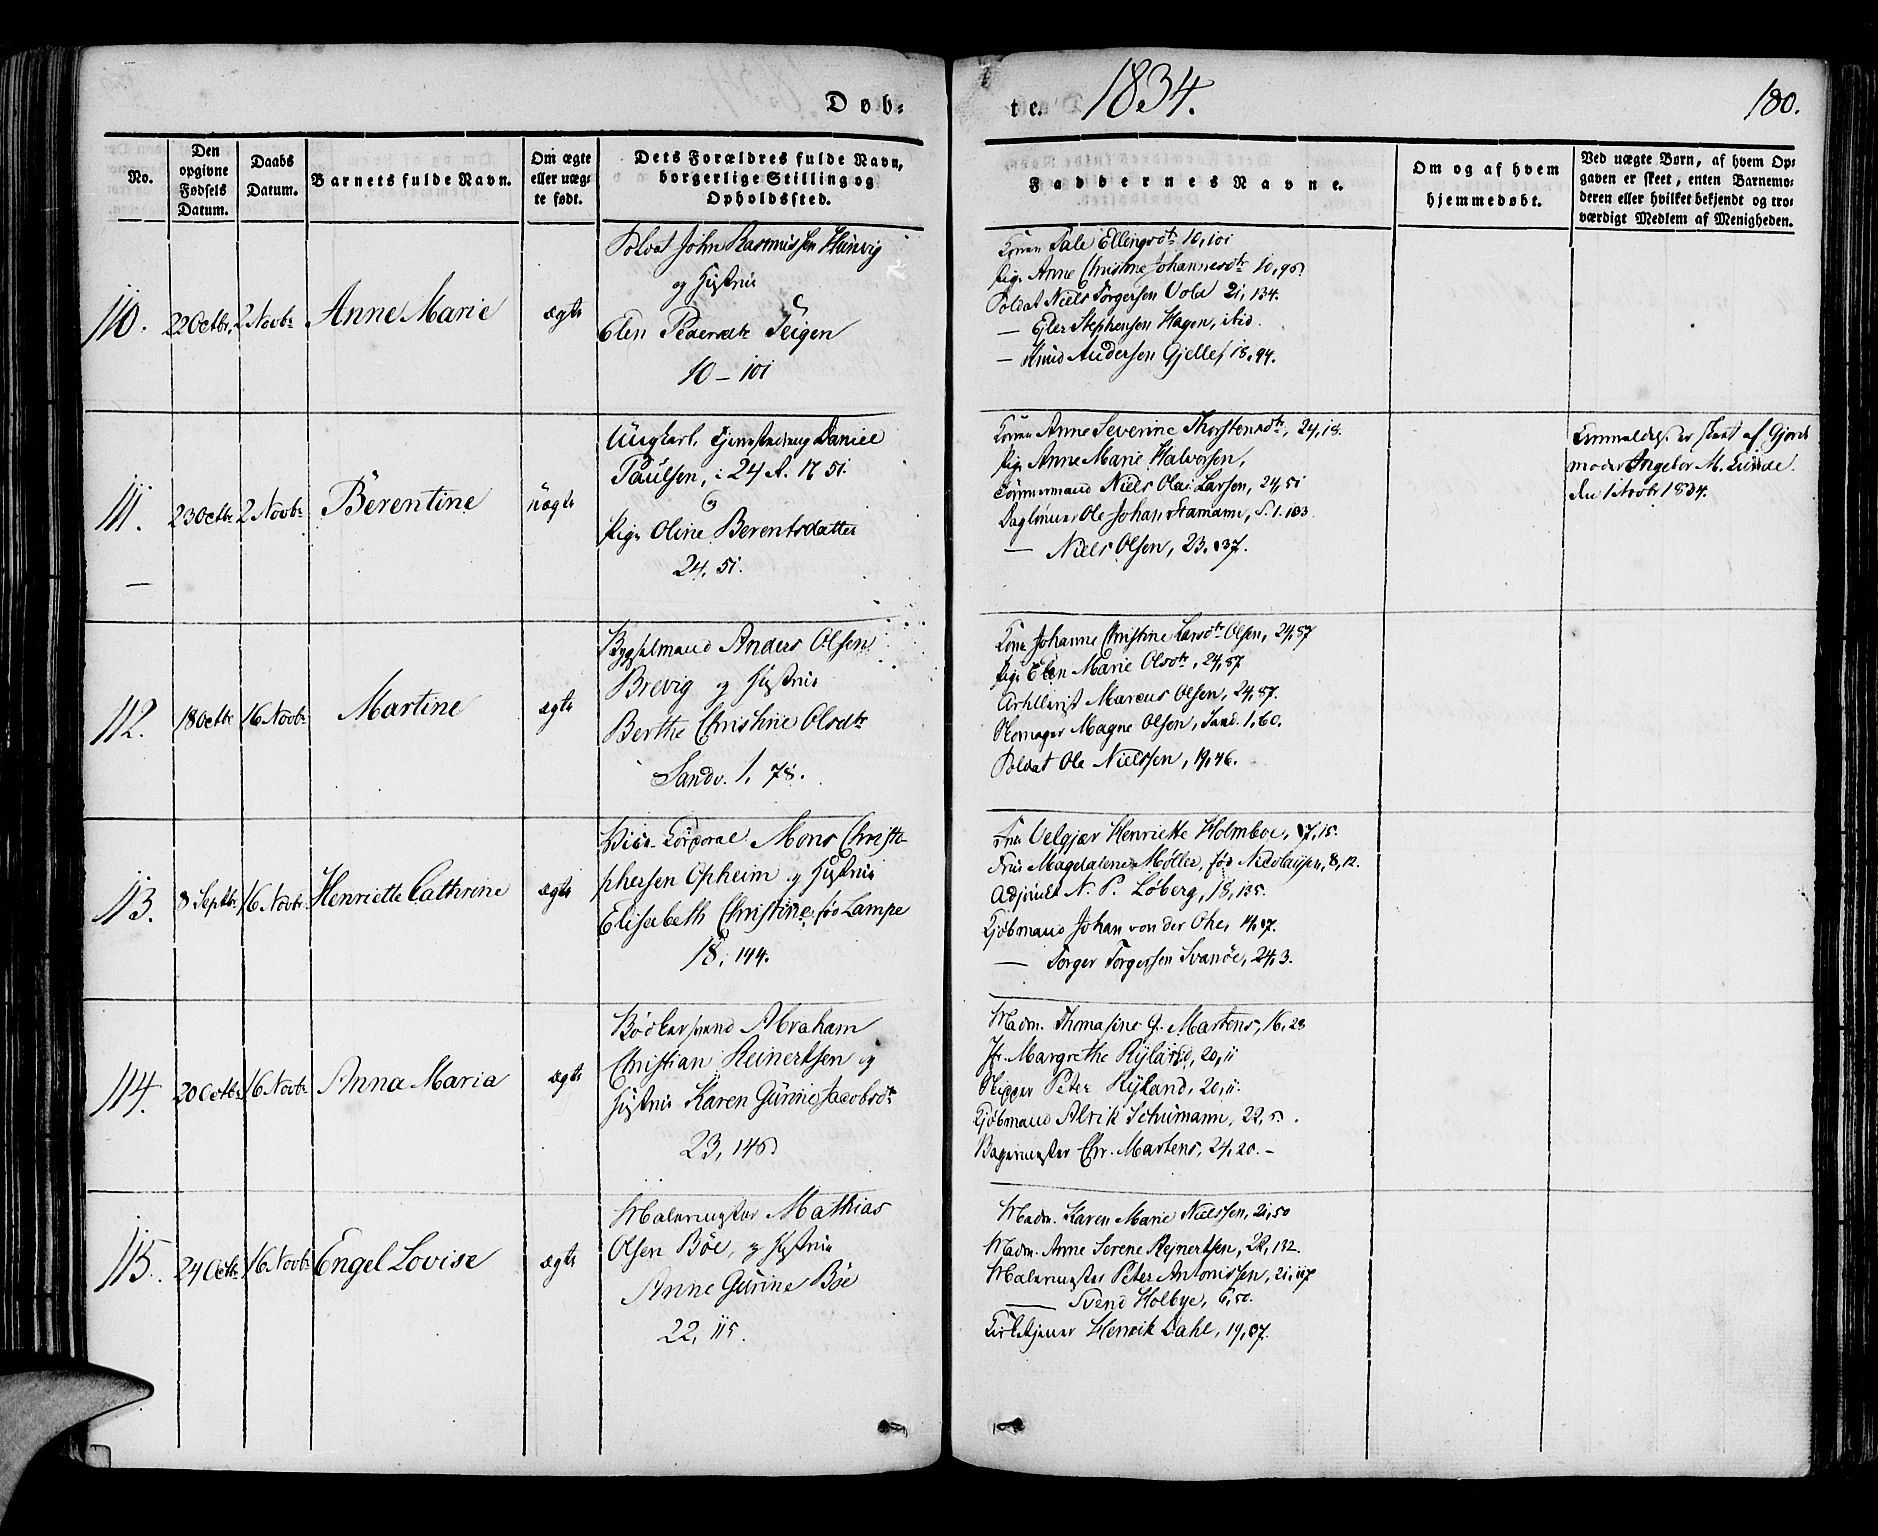 Døb-
te.
1834.
180.
No.
Den opgivne Fødsels Datum.
Daabs Datum.
Barnets fulde Navn.
Om ægte eller uægte født.
Dets Forældres fulde Navn, borgerlige Stilling og Opholdssted.
Faddernes Navne.
Om og af hvem hjemmedøbt.
Ved uægte Børn, af hvem Opgaven er skeet, enten Barnemoderen eller hvilket bekjendt og troværdigt Medlem af Menigheden.
110.
22 Octbr.
2 Novbr
Anne Marie
ægte
Soldat John Rasmussen
og Hustrue
Elen Pedersdtr Teigen
10 – 101
Konen Pale Ellingsdtr 10, 101
Pige Anne Christine Johannesdtr 10, 95
Soldat Niels Torgersen Vold 21, 134.
— Ejler Stephensen Hagen, ibid.
— Knud Andersen Gjelle, 18, 94.
111.
23 Octbr
2 Novbr
Berentine
uægte
Ungkarl, Tjenestedreng Daniel
Paulsen, i 24 R. N 51
og
Pige Oline Berentsdatter
24, 51.
Konen Anne Severine Thorstensdtr, 24, 18.
Pige Anne Marie Halvorsen,
Tømmermand Niels Olai Larsen, 24, 51
Daglønner Ole Johan Stamann, S. 1. 103
— Niels Olsen, 23. 137.
Anmeldelse er skeet af Gjordemoder Ingebor M. Lunde.
den 1 Novbr 1834.
112.
18 Octbr
16 Novbr
Martine
ægte
Bygselmand Anders Olsen
Brevig og Hustrue
Berthe Christine Olsdtr
Sandv. 1, 78.
Kone Johanne Christine Larsdtr Olsen, 24, 57
Pige Elen Marie Olsdtr, 24, 57
Artillerist Marcus Olsen, 24, 57.
Skomager Magne Olsen, Sand. 1, 60.
Soldat Ole Nielssen, 19, 46.
113.
8 Septbr
16 Novbr
Henriette Cathrine
ægte
Vice-Corporal Mons Christo-
phersen Opheim og Hustrue
Elisabeth Christine, fød Lampe
18, 144.
Frue Velgjær Henriette Holmboe, 17, 15.
Frue Magdalene Møller, fød Nicolaysen, 8, 12.
Adjunct N. P. Løberg, 18, 135.
Kjøbmand Johan von der Ohe, 14, 17.
— Torger Torgersen Svanøe, 24, 3.
114.
20 Octbr
16 Novbr
Anna Maria
ægte
Bødkersvend Abraham
Christian Reinertsen og
Hustrue Karen Gurine Jacobsdtr
23, 145
Madm. Thomasine G. Martens, 16, 23
Jfr. Margrethe Ryland, 20, 11
Skipper Peter Ryland, 20, 11.
Kjøbmand Alrik Schumann, 22, 5.
Bagermester Chr. Martens, 24, 20. –
115.
24 Octbr
16 Novbr
Engel Lovise
ægte
Malermester Mathias
Olsen Böe, og Hustrue
Anne Gurine Böe
22, 115.
Madm. Karen Marie Nielssen, 21, 50
Madm. Anne Serene Rejnertsen, 22, 132.
Malermester Peter Antonissen, 21, 117
— Svend Holbye, 6, 50.
Kirketjener Henrik Dahl, 19, 37.